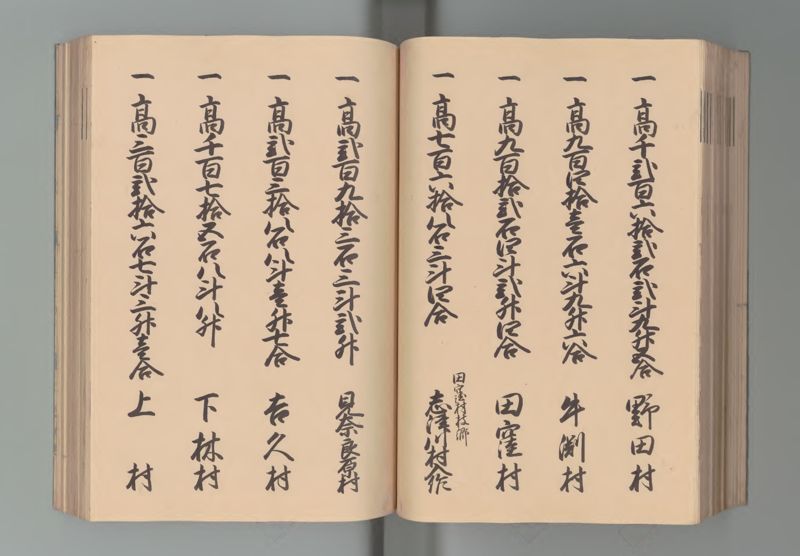 一 高千弐百六拾弐石弐斗九升五合 野田村
一 高九百四拾壱石六斗九升六合 牛渕村
一 高九百拾弐石四斗弐升四合 田窪村
一 高七百六拾八石三斗四合 田窪村枝郷 志津川村
一 高弐百九拾三石三斗弐升 見奈良原村
一 高弐百三拾八石八斗壱升七合 吉久村
一 高千百七拾五石八斗八升 下林村
一 高三百弐拾六石七斗三升壱合 上村